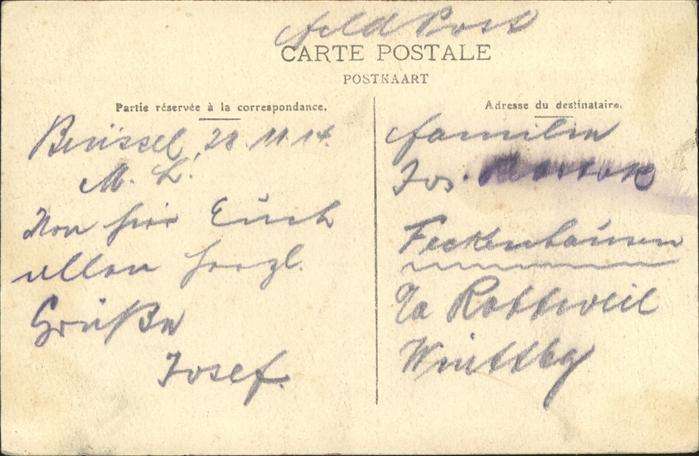 Feldpost
CARTE POSTALE
POSTKAART
Partie réservée à la correspondance.
Adresse du destinataire.
Brüssel, 20.11.14.
M. L.
Von hier Euch
allen herzl.
Grüße
Josef.
Familie
Jos.
Feckenhausen
Rottweil
Württbg